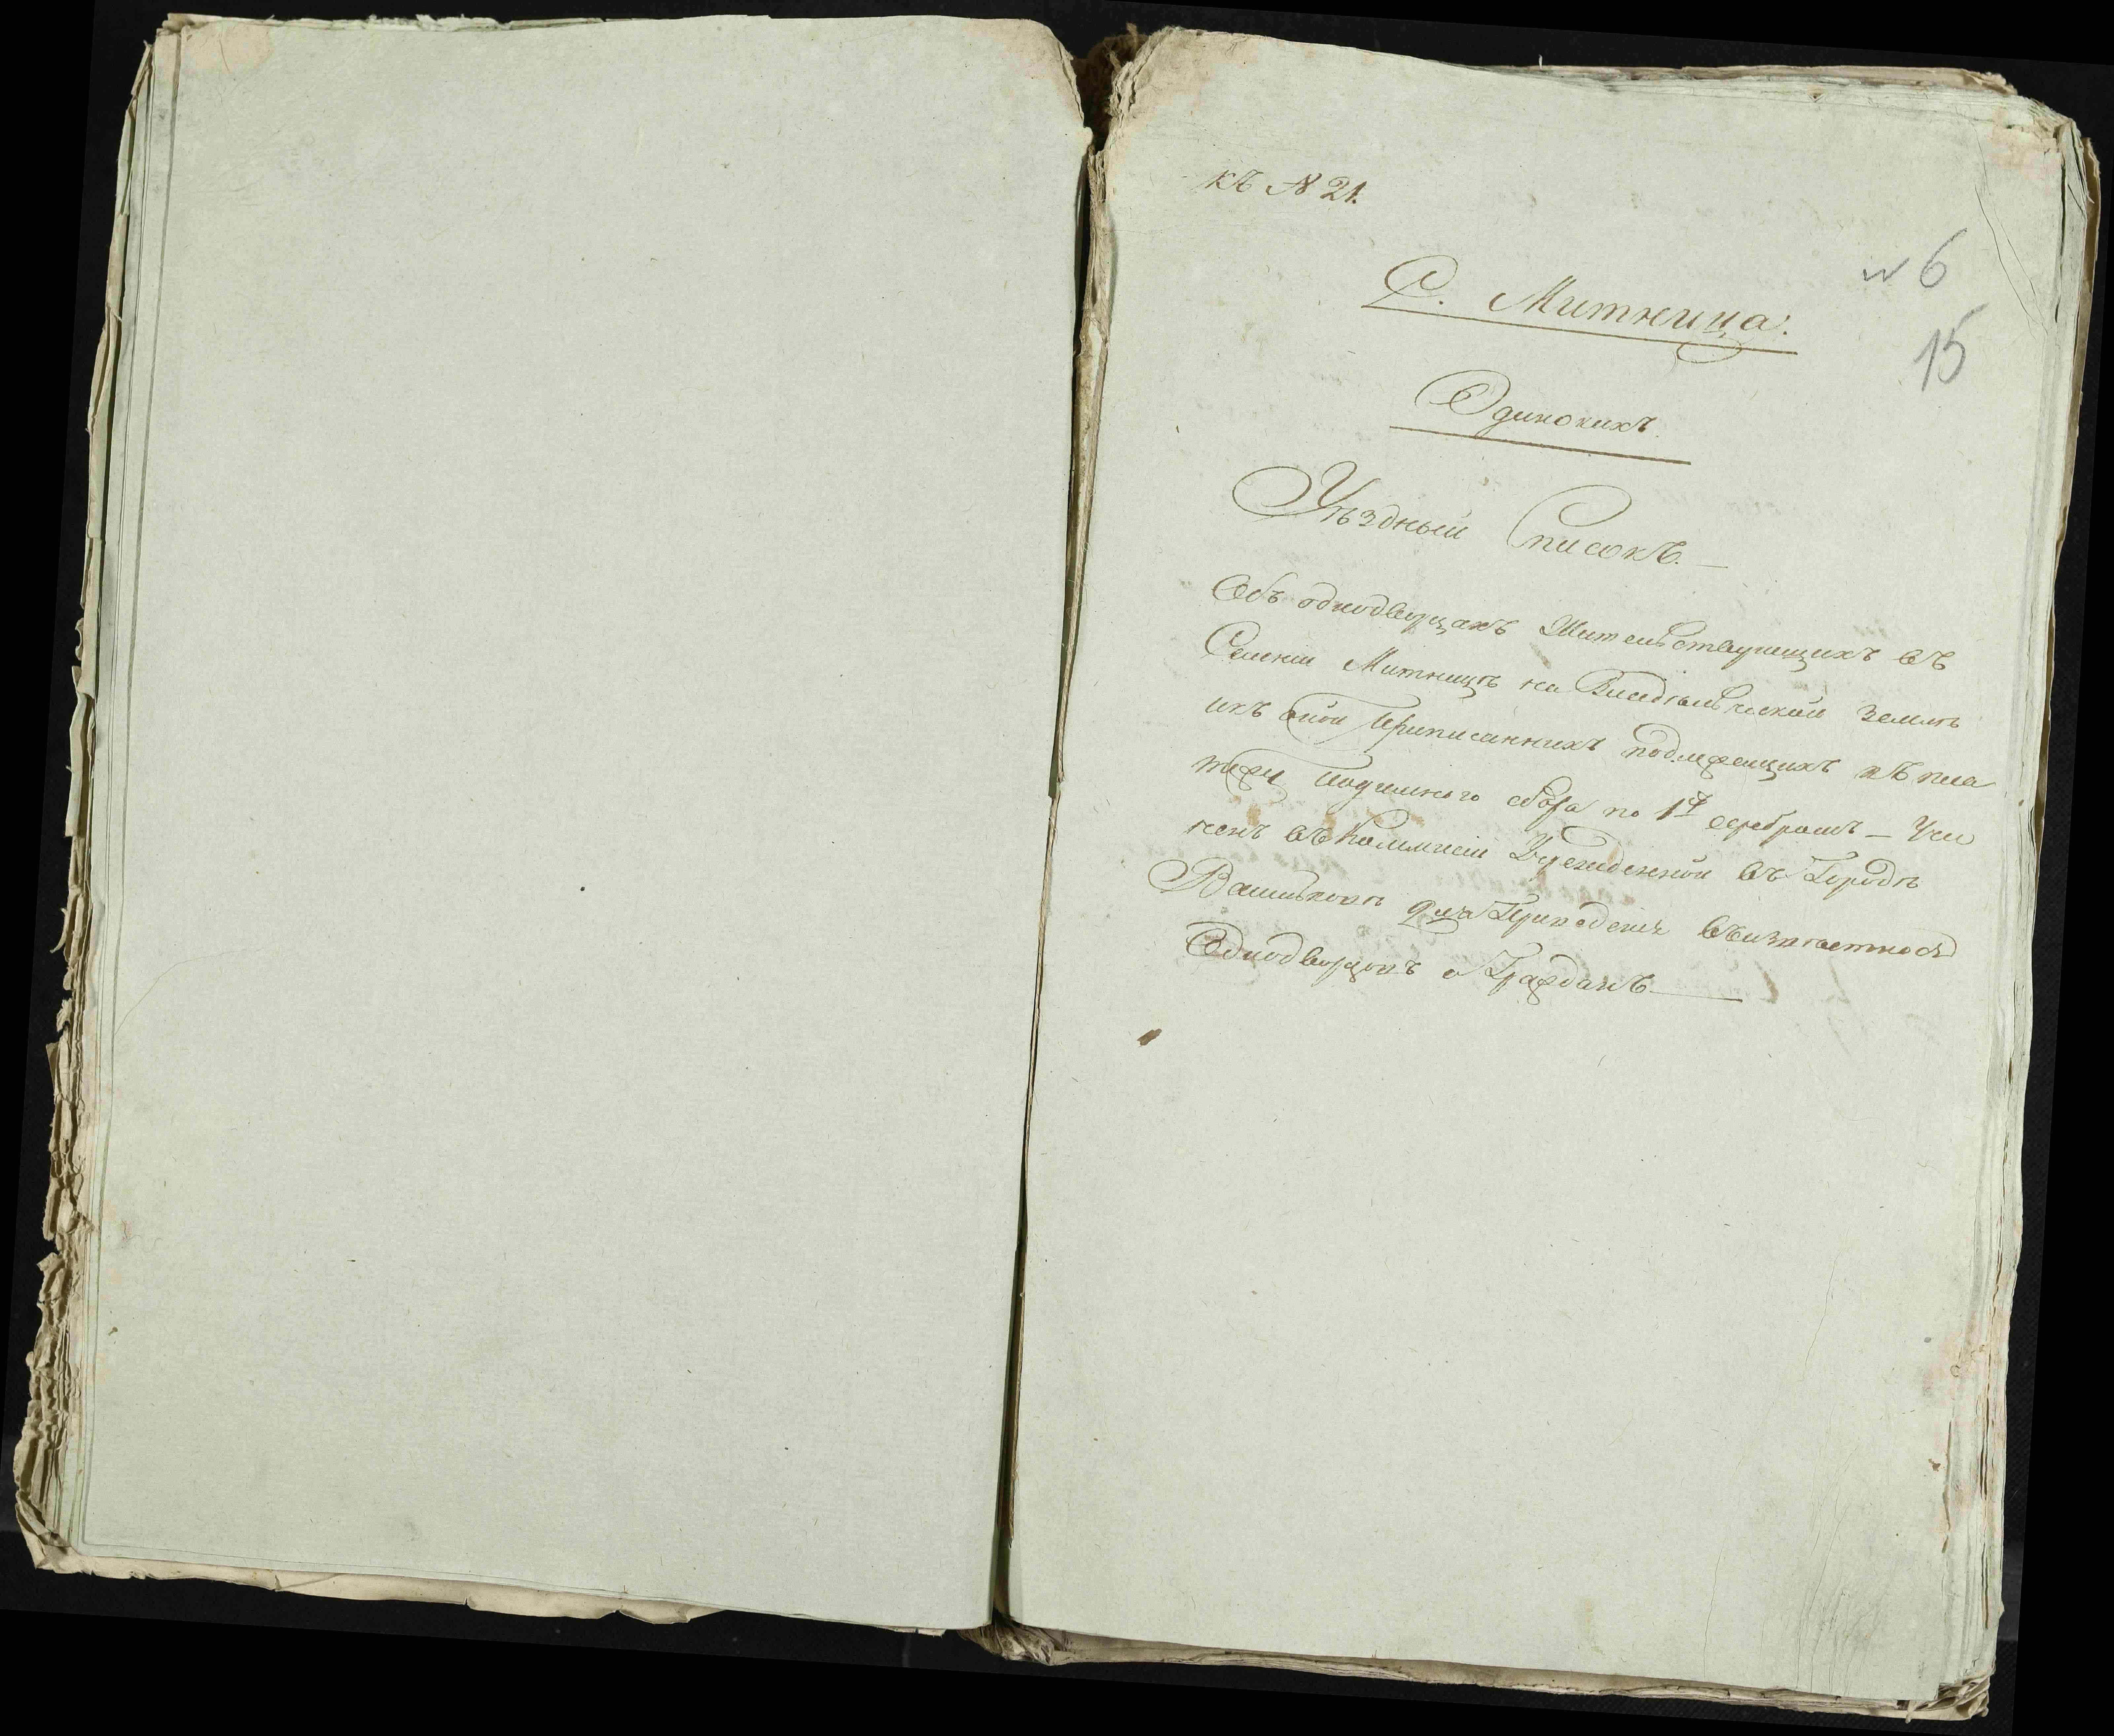 къ № 21.
№ 6
С. Митница.
15
Одинокихъ
Уѣздный Списокъ. —
Объ однодворцахъ Жительствующихъ въ
Селеніи Митницѣ на земли
икъ оной Приписанныхъ подлежащихъ къ пла
тежу Подымнаго сбора по 1 серебромъ — Учи
ненъ въ Коммисіи Учрежденной въ Городѣ
Васильковѣ для Приведенія въ извѣстность
Однодворцовъ и Гражданъ —